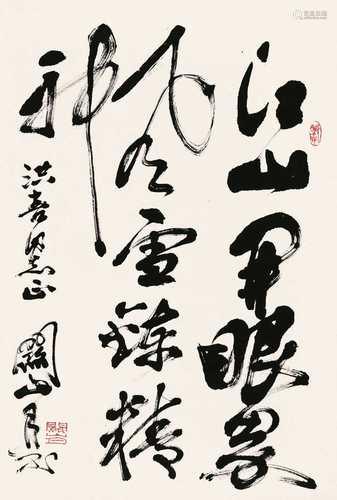 江山开眼界
风雪鍊精
神
洪喜同志正
關山月书